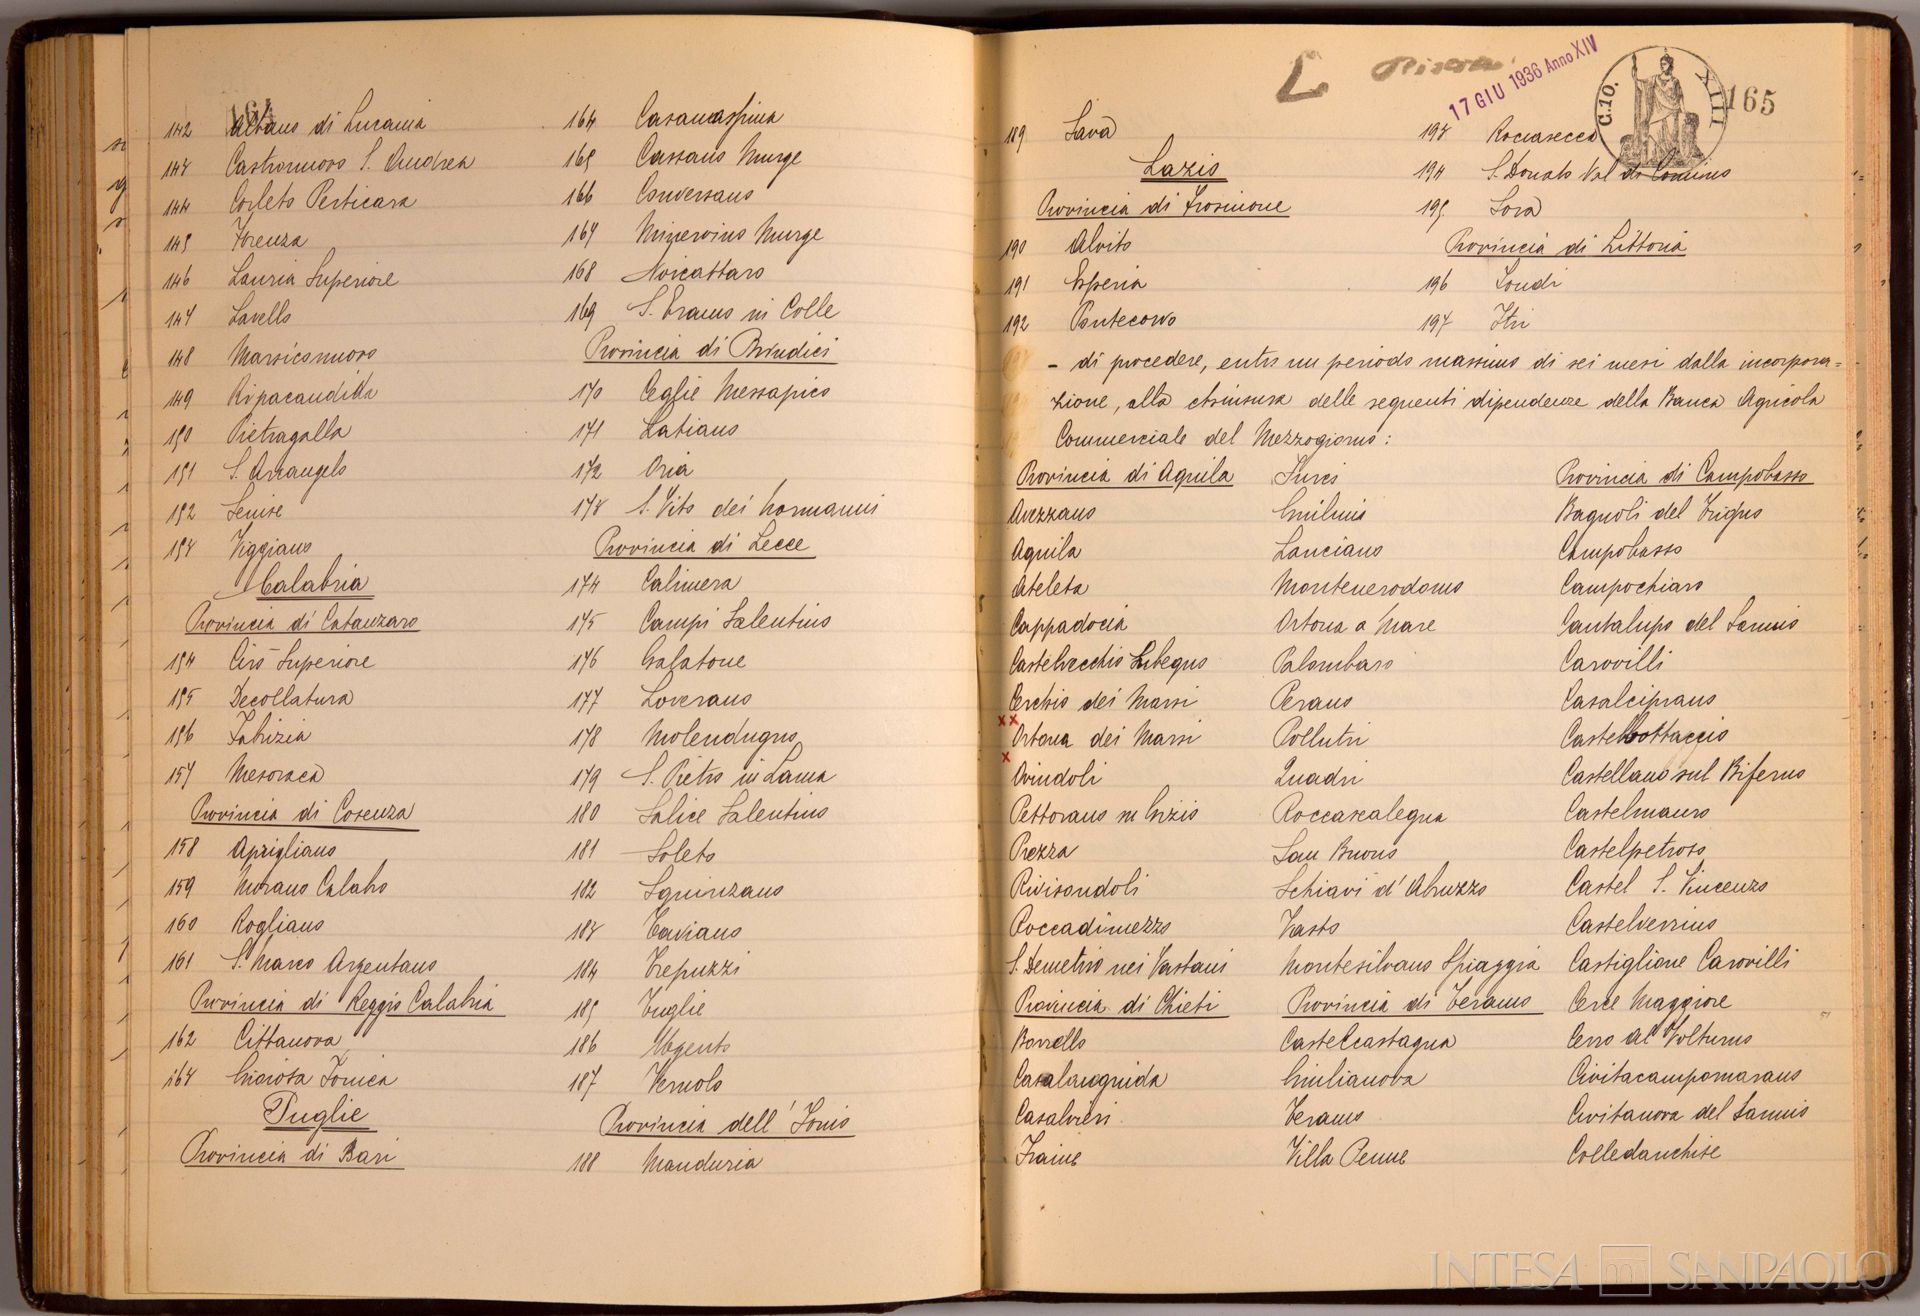 164
142 Albano di Lucania
143 Castronuovo S. Andrea
144 Corleto Perticara
145 Forenza
146 Lauria Superiore
147 Lavello
148 Marsiconuovo
149 Ripacandida
150 Pietragalla
151 S. Arcangelo
152 Senise
153 Viggiano
Calabria
Provincia di Catanzaro
154 Cirò Superiore
155 Decollatura
156 Fabrizia
157 Mesoraca
Provincia di Cosenza
158 Aprigliano
159 Morano Calabro
160 Rogliano
161 S. Marco Argentano
Provincia di Reggio Calabria
162 Cittanova
163 Gioiosa Jonica
Puglie
Provincia di Bari
164 Casamassima
165 Cassano Murge
166 Conversano
167 Minervino Murge
168 Noicattaro
169 S. Eramo in Colle
Provincia di Brindisi
170 Ceglie Messapico
171 Latiano
172 Oria
173 S. Vito dei Normanni
Provincia di Lecce
174 Calimera
175 Campi Salentino
176 Galatone
177 Leverano
178 Melendugno
179 S. Pietro in Lama
180 Salice Salentino
181 Soleto
182 Squinzano
183 Taviano
184 Trepuzzi
185 Tuglie
186 Ugento
187 Vernole
Provincia dell' Jonio
188 Manduria
L
17 GIU 1936 Anno XIV
C.10.
XIII
165
189 Sava
Lazio
Provincia di Frosinone
190 Alvito
191 Esperia
192 Pontecorvo
193 Roccasecca
194 S. Donato Val di Comino
195 Sora
Provincia di Littoria
196 Fondi
197 Itri
- di procedere, entro un periodo massimo di sei mesi dalla incorpora=
zione, alla chiusura delle seguenti dipendenze della Banca Agricola
Commerciale del Mezzogiorno:
Provincia di Aquila
Avezzano
Aquila
Ateleta
Cappadocia
Castelvecchio Subequo
Cerchio dei Marsi
Ortona dei Marsi
Ovindoli
Pettorano su Gizio
Prezza
Rivisondoli
Roccadimezzo
S. Demetrio nei Vestini
Provincia di Chieti
Borrello
Casalanguida
Casalvieri
Fraine
Furci
Guilmi
Lanciano
Montenerodomo
Ortona a Mare
Palombaro
Perano
Pollutri
Quadri
Roccascalegna
San Buono
Schiavi d'Abruzzo
Vasto
Montesilvano Spiaggia
Provincia di Teramo
Castelcastagna
Giulianova
Teramo
Villa Penne
Provincia di Campobasso
Bagnoli del Trigno
Campobasso
Campochiaro
Cantalupo del Sannio
Carovilli
Casalciprano
Castelbottaccio
Castellano sul Biferno
Castelmauro
Castelpetroso
Castel S. Vincenzo
Castelverrino
Castiglione Carovilli
Cerce Maggiore
Cerro al Volturno
Civitacampomarano
Civitanova del Sannio
Colledanchise
INTESA SANPAOLO